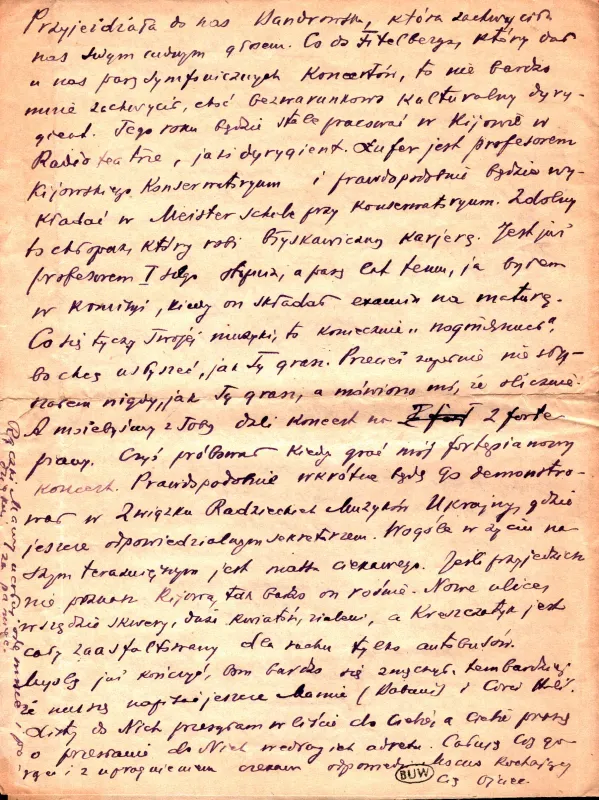 Przyjeżdżała do nas Bandrowska, która zachwyciła
nas swym cudnym głosem. Co do Fitelberga, który dał
u nas parę symfonicznych koncertów, to nie bardzo
mnie zachwycił, choć bezwarunkowo kulturalny dyry-
gient. Tego roku będzie stale pracować w Kijowie w
Radioteatrze, jako dyrygient. Lufer jest profesorem
Kijowskiego Konserwatoryum i prawdopodobnie będzie wy-
kładać w Meisterschule przy Konserwatoryum. Zdolny
to chłopak, który robi błyskawiczną karjerę. Jest już
profesorem I-szego stopnia, a parę lat temu, ja byłem
w komisyi, kiedy on składał examin na maturę.
Co się tyczy Twojej muzyki, to koniecznie
bo chcę usłyszeć, jak Ty grasz. Przecież zupełnie nie sły-
szałem nigdy, jak Ty grasz, a mówiono mi, że ślicznie.
A możebyśmy z Tobą dali koncert na 2 forte-
piany. Czyś próbował kiedy grać mój fortepianowy
koncert. Prawdopodobnie wkrótce będę go demonstro-
wać w Związku Radzieckich Muzyków Ukrainy, gdzie
jestem odpowiedzialnym sekretarzem. Wogóle w życiu na-
szym teraźniejszym jest masa ciekawego. Jeśli przyjedziesz
nie poznasz Kijowa, tak bardzo on rośnie. Nowe ulice,
wszędzie skwery, dużo kwiatów, zieleni, a Kreszczatyk jest
cały zaasfaltowany dla ruchu tylko autobusów.
Myślę już kończyć, bom bardzo się zmęczył, tembardziej
że muszę napisać jeszcze Mamie (Babuni) i Cioci
Listy do Nich przesyłam w liście do Ciebie, a Ciebie proszę
o przesłanie do Nich według ich adresu. Całuję Cię go-
rąco i z upragnieniem czekam odpowiedzi. Mocno kochający
Cię Ojciec.
BUW